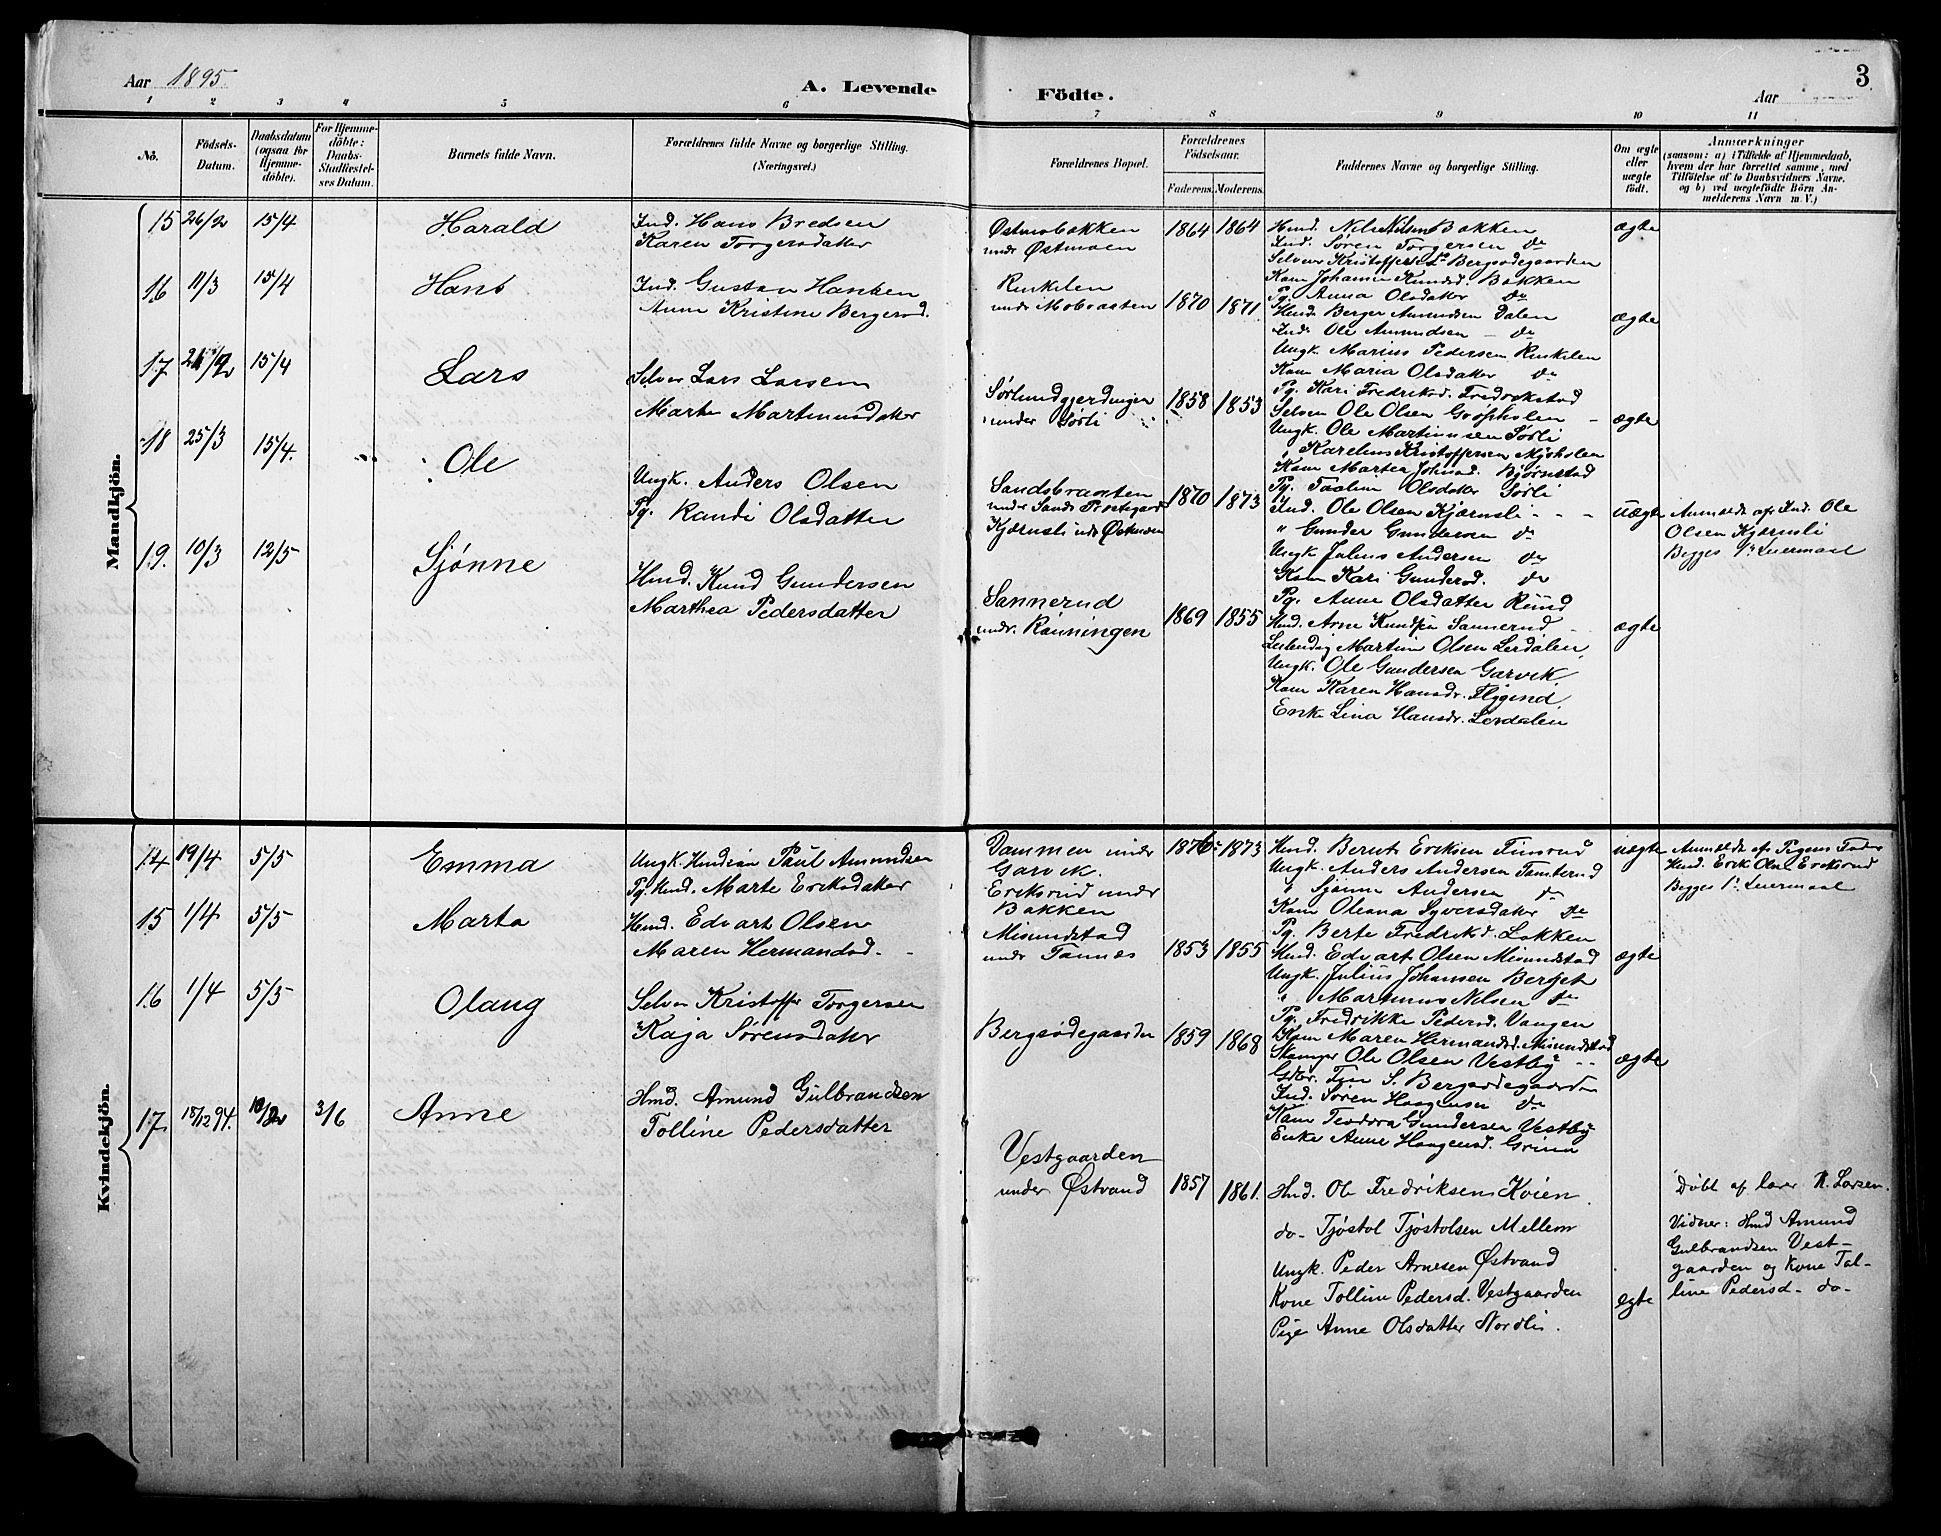 Aar 1895
A. Levende
Födte.
Aar
3
1 2 3 4 5 6 7 8 9 10 11
No.
Födsels-
Datum.
Daabsdatum
(ogsaa för
Hjemme-
döbte).
For Hjemme-
döbte:
Daabs-
Stadfæstel-
ses Datum.
Barnets fulde Navn.
Forældrenes fulde Navne og borgerlige Stilling.
(Næringsvei.)
Forældrenes Bopæl.
Forældrenes
Födselsaar.
Faderens. Moderens.
Faddernes Navne og borgerlige Stilling.
Om ægte
eller
uægte
födt.
Anmærkninger
(saasom: a) i Tilfælde af Hjemmedaab,
hvem der har forrettet samme, med
Tilföielse af to Daabsvidners Navne.
og b) ved uægtefödte Börn An-
melderens Navn m. V.)
Mandkjön.
15 26/2 15/4 Harald
Ind. Hans Bredsen
Karen Torgersdatter
Østmobakken
under Østmoen
1864 1864
Hmd. Nils Nilsen Bakken
Ind. Søren Torgersen do
Selveier Kristoffer Bergsødegaarden
Kone Johanne Knudsd. Bakken
Pg. Anna Olsdatter do
ægte
16 11/3 15/4 Hans
Ind. Gustav Hansen
Anne Kristine Bergersd.
Ruskelen
under Mobraaten
1870 1871
Hmd. Berger Amundsen Dalen
Ind. Ole Amundsen do
Ungk. Marius Pedersen Ruskelen
Kone Maria Olsdatter do
Pg. Kari Fredriksd. Fredrikstad
ægte
17 15/4 Lars
Selveier Lars Larsen
Marte Martinusdatter
Sørlundgjerdingen
under Sørli
1858 1853
Selveier Ole Olsen
Ungk. Ole Martinusen Sørli
" Karelius Kristoffersen
Kone Martea Johnsd. Bjørnstad
Pg. Olsdatter Sørli
ægte
18 25/3 15/4. Ole
Ungk. Anders Olsen
Pg. Randi Olsdatter
Sandsbraaten
under Sands
Kjærnsli under Østmoen
1870 1873
Ind. Ole Olsen Kjærnsli
" Gunder Gundersen do
Ungk. Julius Andersen do
Kone Kari Gundersd. do
Pg. Anne Olsdatter Ruud
uægte
Anmeldt af Ind. Ole
Olsen Kjærnsli
Begges 1ste Leiermaal
19. 10/3 12/5 Sjønne
Hmd. Knud Gundersen
Marthea Pedersdatter
Sannerud
under Rønningen
1869 1855
Hmd. Arne Knudsen Sannerud
Leilending Martin Olsen Lerdalen
Ungk. Ole Gundersen Garvik
Kone Karen Hansdr. Flygind
Enke Lina Hansdr. Lerdalen
ægte
Kvindekjön.
14 19/4 5/5 Emma
Ungk. Paul Amundsen
Pg. Hmd. Marte Eriksdatter
Dammen under
Garvik.
Eriksrud under
Bakken
1876 1873
Hmd. Bernt Eriksen Finsrud
Ungk. Anders Andersen Tamterud
" Sjønne Andersen do
Kone Oleana Syversdatter do
Pg. Berte Fredriksd. Løkken
uægte
Anmeldt af Pigens Fader
Hmd. Erik Olsen Eriksrud
Begges 1ste Leiermaal
15 1/4 5/5 Marta
Hmd. Edvart Olsen
Maren Hermandsd.
Misundstad
under Tannes
1853 1855
Hmd. Edvart Olsen Misundstad
Ungk. Julius Johansen Berget
" Martinus Nilsen do
Pg. Fredrikke Pedersd. Vangen
Kone Maren Hermandsd. Misundstad
ægte
16 1/4 5/5 Olaug
Selveier Kristoffer Torgersen
Kaja Sørensdatter
Bergsødegaarden
1859 1868
Ole Olsen Vestby
Gdbr. S. Bergsødegaarden
Ind. Søren Haagensen do
Kone Teodora Gundersen Vestby
Enke Anne Haagensd. Grina
ægte
17 18/12 94. 3/6 Anne
Hmd. Amund Gulbrandsen
Tolline Pedersdatter
Vestgaarden
under Østvand
1857 1861.
Hmd. Ole Fredriksen Kvien
do- Tjøstol Tjøstolsen Mellem
Ungk. Peder Arnesen Østvand
Kone Tolline Pedersd. Vestgaarden
Pige Anne Olsdatter Nordli.
egte
Døbt af lærer K. Larsen.
Vidner: Hmd Amund
Gulbrandsen Vest-
gaarden og Kone Tol-
line Pedersd- do-